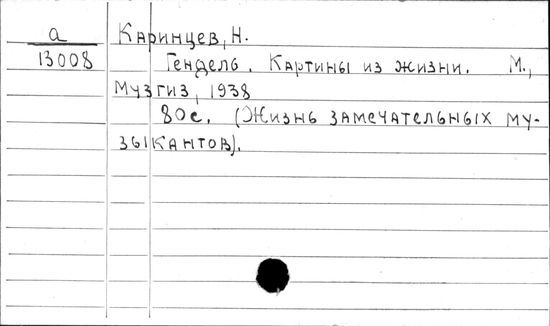 а Каринцев, Н.
13008 Гендель. Картины из жизни. М.,
Музгиз, 1938
80 с. (Жизнь замечательных му-
зыкантов).